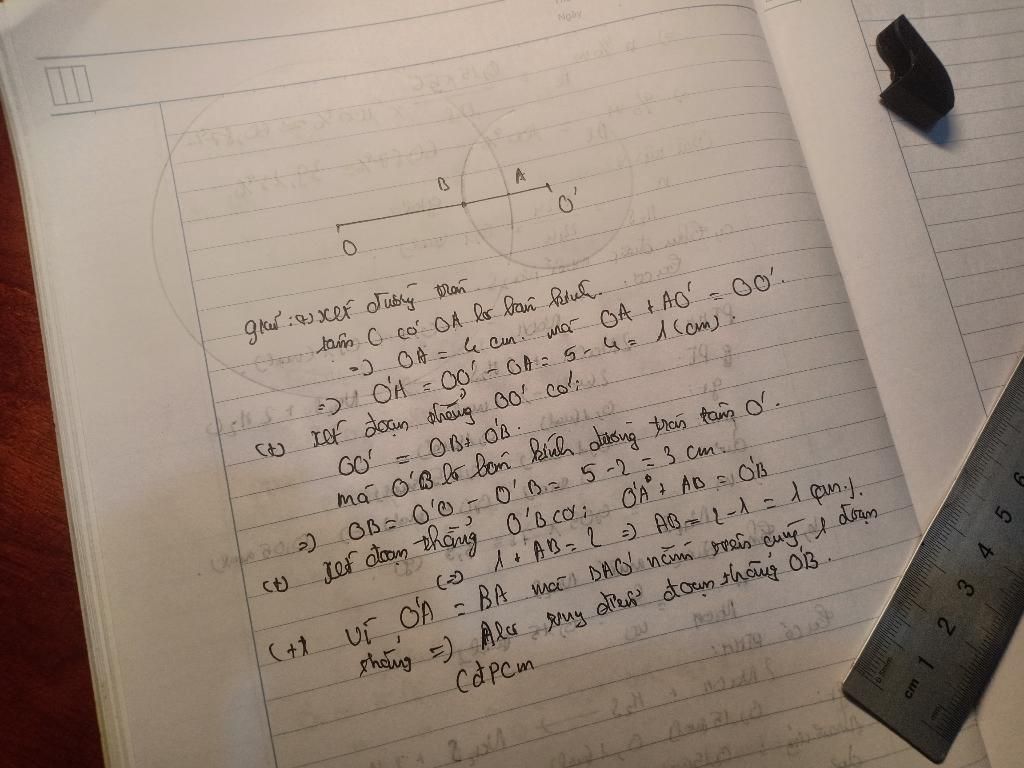 Ngày
B A
O O'
giải: (+) xét đường tròn
tâm O có OA là bán kính.
=> OA = 4 cm. mà OA + AO' = OO'.
=> O'A = OO' - OA = 5 - 4 = 1 (cm)
(+) xét đoạn thẳng OO' có:
OO' = OB + O'B.
mà O'B là bán kính đường tròn tâm O'.
=> OB = O'O - O'B = 5 - 2 = 3 cm.
(+) xét đoạn thẳng O'B có: O'A + AB = O'B
(=> 1 + AB = 2 => AB = 2 - 1 = 1 (cm).
(+) Vì O'A = BA mà BAO' nằm trên cùng 1 đoạn
thẳng => A là trung điểm đoạn thẳng O'B.
(đPCm
cm 1 2 3 4 5 6